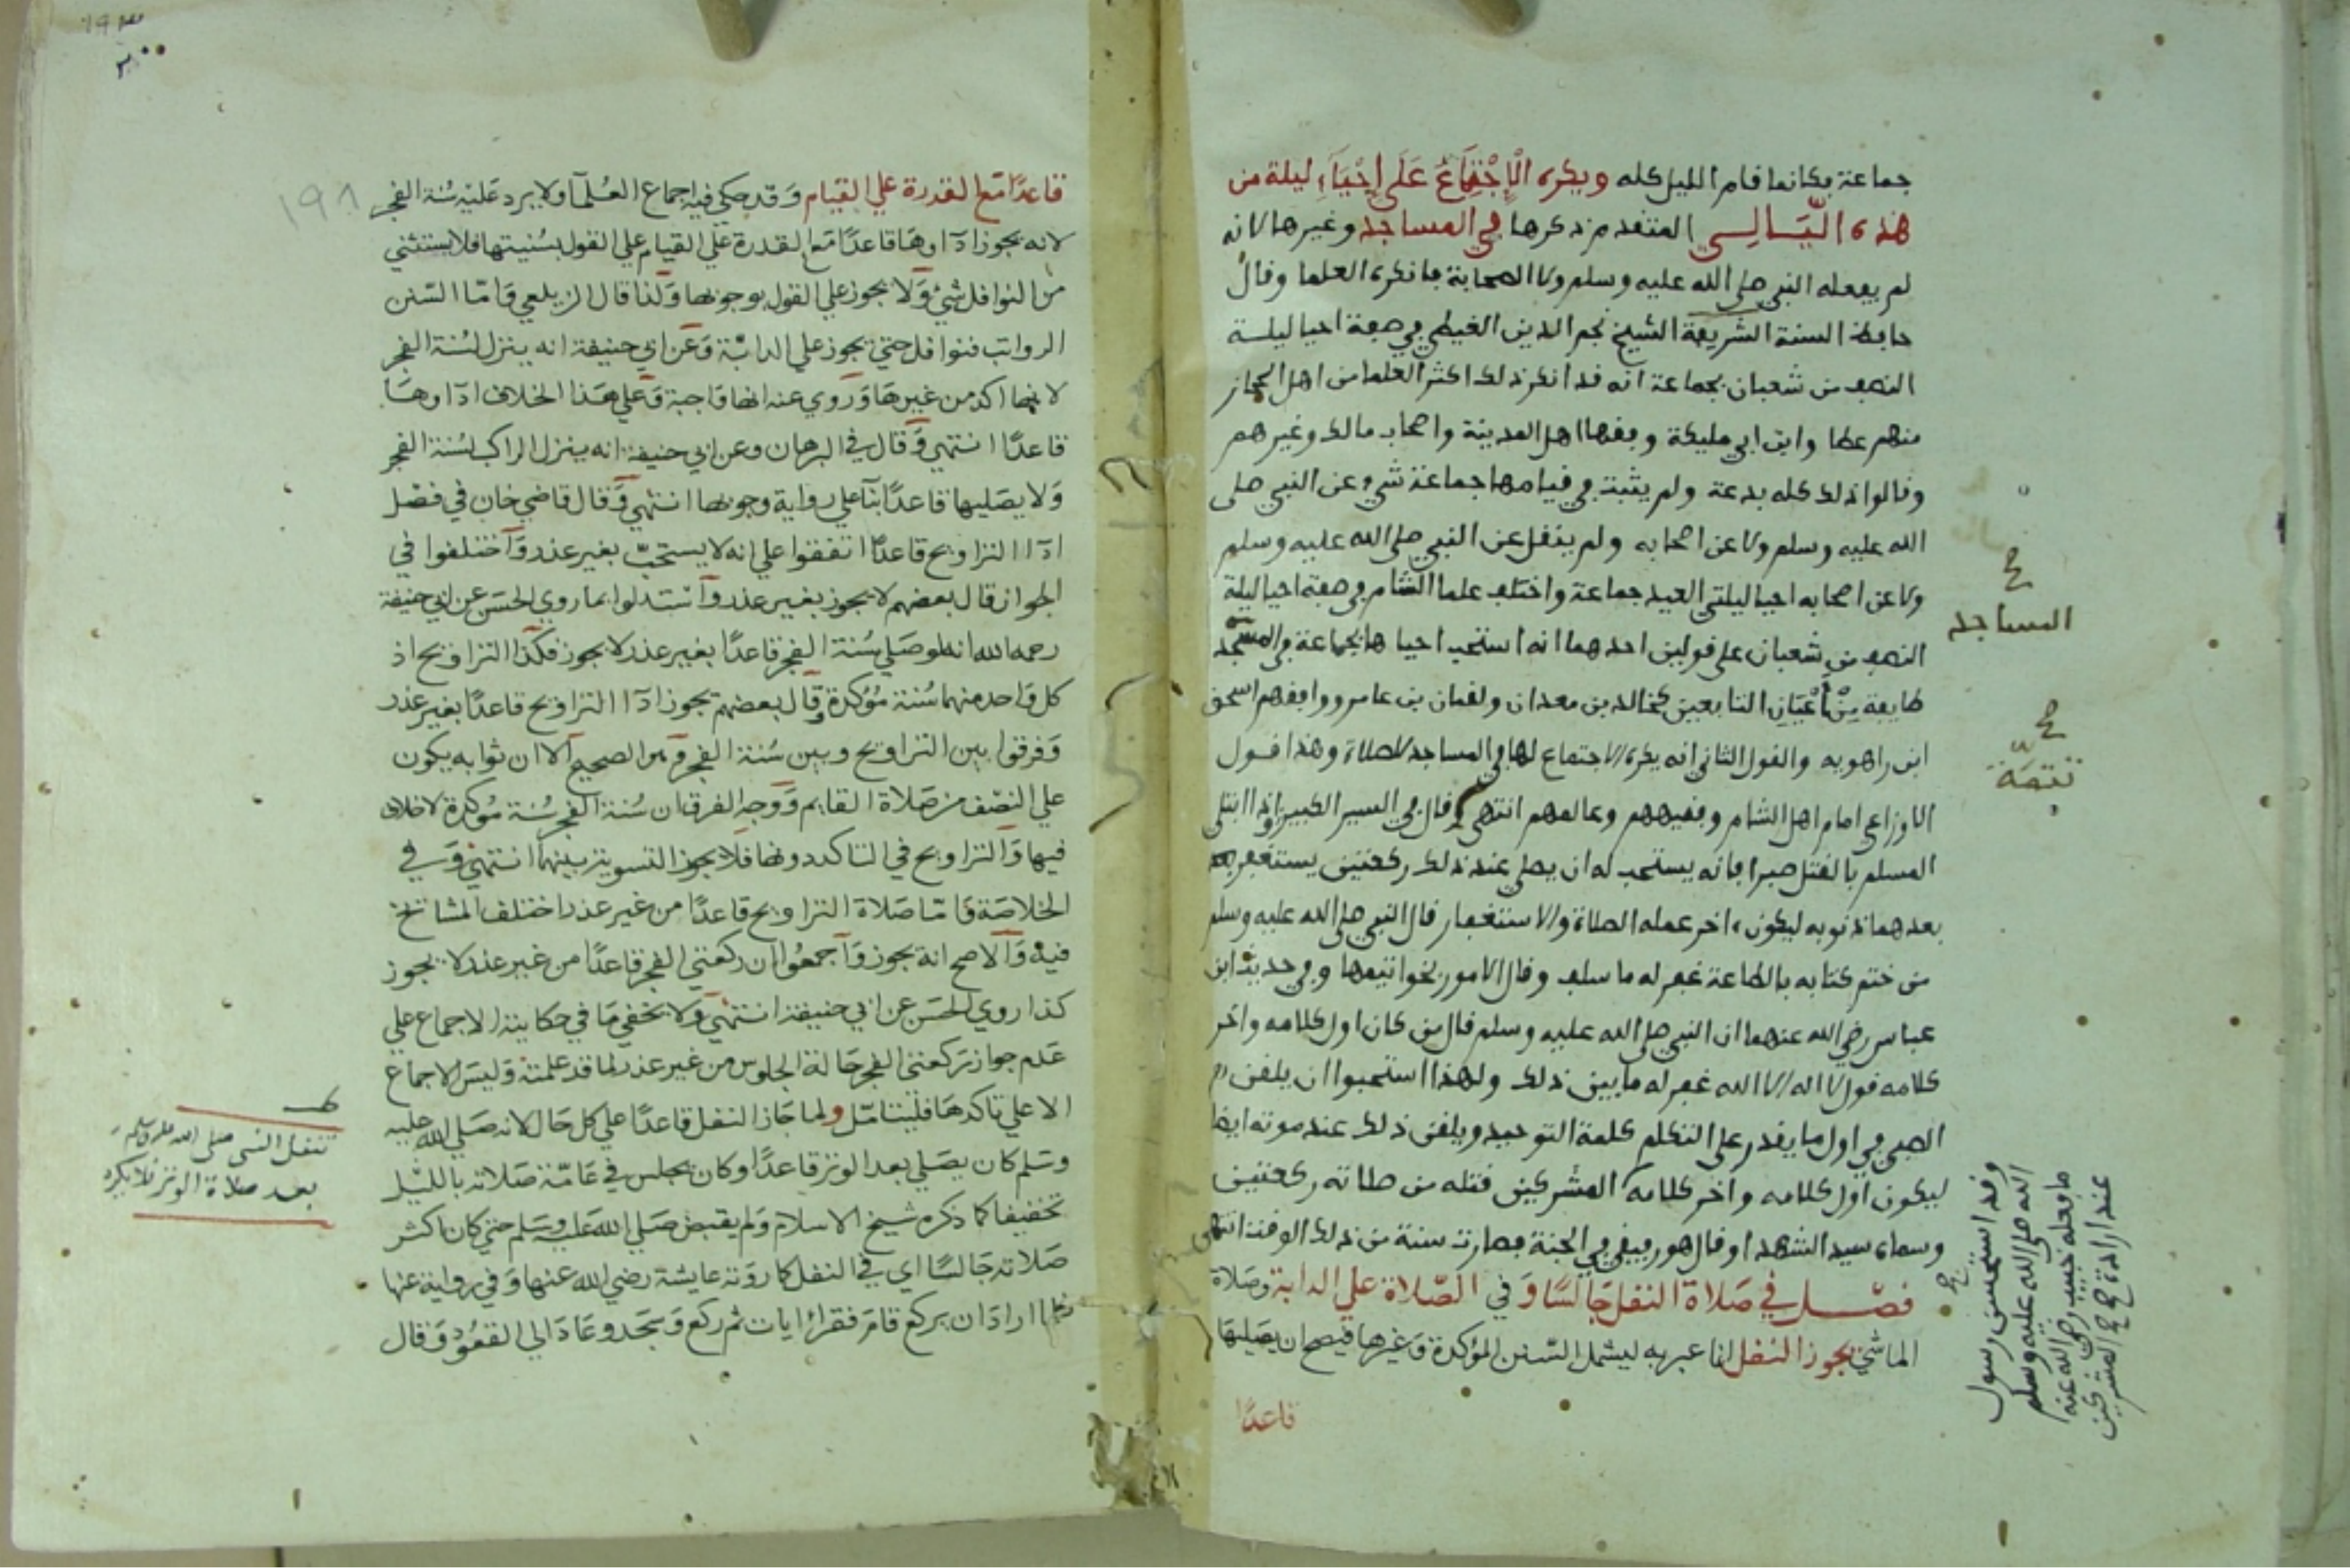 جماعة بكانما قام الليل كله ويكره الْاِجْتِمَاعُ عَلَى اِحْيَآءِ ليلة من
هذه اللّيَالِي المتقدم ذكرها في المساجد وغيرها لانه
لم يفعله النبي صلى الله عليه وسلم ولا الصحابة فانكره العلما وقال
حافظ السنة الشريفة الشيخ نجم الدين الغيطي في صفة احيا ليلة
النصف من شعبان بجماعة انه قد انكر ذلك اكثر العلما من اهل الحجاز
منهم عطا وابن ابي مليكة وفقها اهل المدينة واصحاب مالك وغيرهم
وقالوا ذلك كله بدعة ولم يثبت في قيامها جماعة شيء عن النبي صلى
الله عليه وسلم ولا عن اصحابه ولم ينقل عن النبي صلى الله عليه وسلم
ولا عن اصحابه احيا ليلتي العيد جماعة واختلف علما الشام في صفة احيا ليلة
النصف من شعبان على قولين احدهما انه استحب احياها بجماعة في المسجد
طايفة مِنْ اَعْيَانِ التابعين كخالد بن معدان ولقمان بن عامر ووافقهم اسحق
ابن راهويه والقول الثاني انه يكره الاجتماع لها في المساجد للصلاة وهذا قول
الاوزاعي امام اهل الشام وفقيههم وعالمهم انتهى وقال في السير الكبير اذا ابتلي
المسلم بالقتل صبرا فانه يستحب له ان يصلي عند ذلك ركعتين يستغفر
بعدهما ذنوبه ليكون اخر عمله الصلاة والاستغفار قال النبي صلى الله عليه وسلم
من ختم كتابه بالطاعة غفر له ما سلف وقال الامور بخواتيمها وفي حديث ابن
عباس رضي الله عنهما ان النبي صلى الله عليه وسلم قال من كان اول كلامه واخر
كلامه قول لا اله الا الله غفر له ما بين ذلك ولهذا استحبوا ان يلقن
الصبي في اول ما يقدر على التكلم كلمة التوحيد ويلقن ذلك عند موته ايضا
ليكون اول كلامه واخر كلامه المشركين قتله من صلاته ركعتين
وسماه سيد الشهدا وقال هو رفيقي في الجنة فصارت سنة من ذلك الوقت انتهى
فصل في صَلاة النفل جَالسًا وَفي الصّلاة علي الدابة وصَلاة
الماشي يجوز النفل انما عبر به ليشمل السّنن المؤكدة وَغيرها فيصح ان يصَليهَا
قاعدًا
المساجد
تتمّة
وقد استحسن رسول
الله صلى الله عليه وسلم
ما فعله خبيب رضي الله عنه
عند ارادة المشركين
١٩٣
١٩٨
قاعدًا مَع القدرة علي القيَام وَقد حكي فيه اجماع العُلمآ ولا يرد عَليه سُنة الفجر
لانه يجوز ادآوهَا قاعدًا مَع القدرة علي القيام علي القول بسُنيتها فلا يستثني
من النوافل شيء وَلا يجوز علي القول بوجوبها وَلذا قال الزيلعي وَامّا السّنن
الرواتب فنوافل حتي يجوز علي الدابّة وَعَن ابي حنيفة انه ينزل لسُنة الفجر
لانها اكد من غيرهَا وَرُوي عنه انها وَاجبة وَعلي هَذا الخلاف ادآوهَا
قاعدًا انتهي وَقال في البرهان وعن ابي حنيفة انه ينزل الراكب لسُنة الفجر
وَلا يصَليها قاعدًا بنآ علي رواية وجوبها انتهي وَقال قاضي خان في فصْل
ادآ التراويح قاعدًا اتفقوا علي انه لا يستحبّ بغير عذر وَاختلفوا في
الجواز قال بعضهم لا يجوز بغير عذر وَاستدلوا بما روي الحسَن عن ابي حنيفة
رحمه الله انه لو صَلي سُنة الفجر قاعدًا بغير عذر لا يجوز فكذا التراويح اذ
كل وَاحد منهما سُنة مُؤكدة وقال بعضهم يجوز ادآ التراويح قاعدًا بغير عذر
وَفرقوا بين التراويح وبين سُنة الفجر وَهو الصحيح الا ان ثوابه يكون
علي النصْف من صَلاة القايم وَوجه الفرق ان سُنة الفجر سُنة مُؤكدة لا خلاف
فيها وَالتراويح في التاكد دونها فلا يجوز التسوية بينهما انتهي وَفي
الخلاصَة وَامّا صَلاة التراويح قاعدًا من غير عذر اختلف المشائخ
فيه وَالاصح انه يجوز وَاجمعُوا ان ركعتي الفجر قاعدًا من غير عذر لا يجوز
كذا روي الحسَن عن ابي حنيفة انتهي وَلا يخفي مَا في حكاية الاجماع علي
عَدم جواز ركعتي الفجر حَالة الجلوس من غير عذر لما قد علمته وَليسَ الاجماع
الا علي تاكدهَا فليتامّل ولما جَاز النفل قاعدًا علي كل حَال لانه صَلي الله عليه
وسَلم كان يصَلي بعد الوتر قاعدًا وكان يجلس في عَامّة صَلاته بالليْل
تخفيفا كما ذكره شيخ الاسلام وَلم يقبض صَلي الله عَليه وسَلم حتي كان اكثر
صَلاته جَالسًا اي في النفل كما روَته عايشة رضي الله عنها وَفي رواية عنها
فلما ارادَ ان يركع قامَ فقرا ايات ثم ركع وَسَجَد وعَادَ الي القعُود وَقال
تنفل النبي صلى الله عليه وسلم
بعد صلاة الوتر فلا يكره